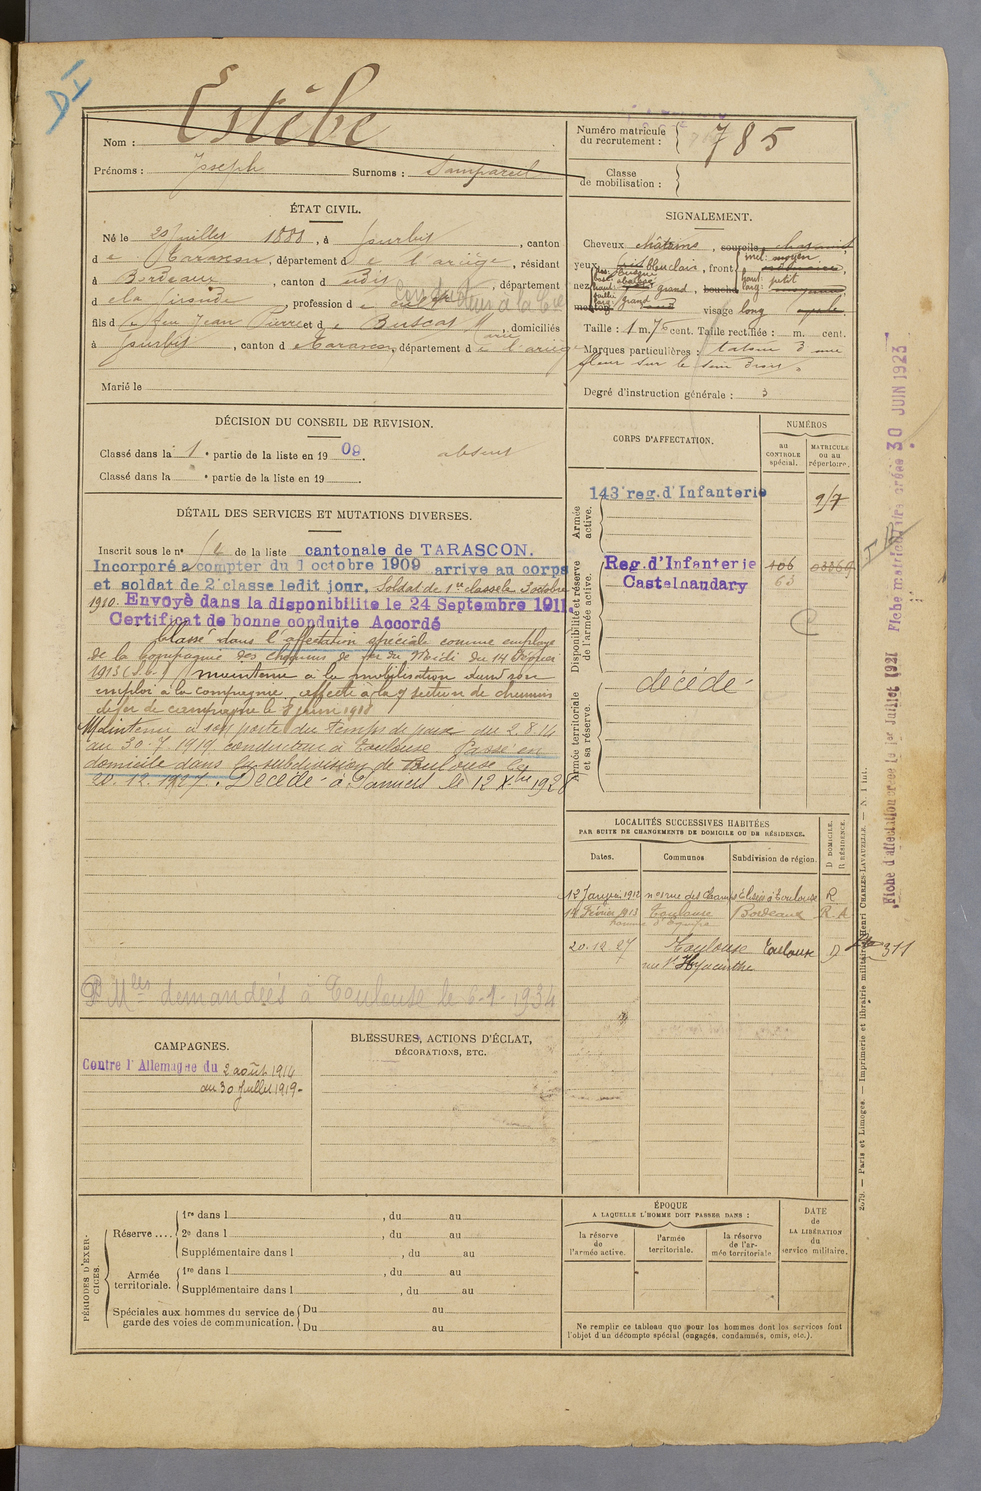 D I
Nom : Estèbe
Prénoms : Joseph Surnoms : Sampareil
Numéro matricule du recrutement : 785
Classe de mobilisation :
ÉTAT CIVIL.
Né le 20 Juillet 1888, à Gourbit, canton
de Tarascon, département de l'ariège, résidant
à Bordeaux, canton d udit, département
d e la Gironde, profession d e
fils d e feu Jean Pierre et d e Buscat Marie, domiciliés
à Gourbit, canton d e Tarascon, département d e l'ariège
Marié le
SIGNALEMENT.
Cheveux châtains, sourcils châtains,
yeux bleu clair, front incl: moyen
haut: petit
larg:
nez grand, bouche
menton visage long
Taille : 1 m. 76 cent. Taille rectifiée : m. cent.
Marques particulières : tatoué d'une
fleur sur le sein droit.
Degré d'instruction générale : 3
DÉCISION DU CONSEIL DE REVISION.
Classé dans la 1e partie de la liste en 1909. absent
Classé dans la e partie de la liste en 19
DÉTAIL DES SERVICES ET MUTATIONS DIVERSES.
Inscrit sous le n° 16 de la liste cantonale de TARASCON.
Incorporé à compter du 1 octobre 1909 arrivé au corps
et soldat de 2e classe ledit jour, Soldat de 1re classe le 3 octobre
1910. Envoyé dans la disponibilité le 24 Septembre 1911.
Certificat de bonne conduite Accordé
Classé dans l'affectation spéciale comme employé
de la Compagnie des Chemins de fer du Midi du 14 Février
1913 (S.G.) Maintenu à la mobilisation dans son
emploi à la compagnie, affecté à la section de chemins
de fer de campagne le 8 juin 1918
Maintenu à son poste du temps de paix du 2.8.14
au 30.7.1919. conducteur à Toulouse. Passé en
domicile dans la subdivision de Toulouse le
20.12.1927. Décédé à Pamiers le 12 Xbre 1928
P Mles demandées à Toulouse le 6-1-1934
CORPS D'AFFECTATION.
NUMÉROS
au CONTROLE spécial.
MATRICULE ou au répertoire.
Armée active.
143e reg. d'Infanterie
9/7
Disponibilité et réserve de l'armée active.
Reg. d'Infanterie 106
Castelnaudary 63
C
Armée territoriale et sa réserve.
décédé
LOCALITÉS SUCCESSIVES HABITÉES
PAR SUITE DE CHANGEMENTS DE DOMICILE OU DE RÉSIDENCE.
Dates. Communes Subdivision de région. D DOMICILE. R RÉSIDENCE.
12 Janvier 1912 rue des Champs Elysées à Toulouse R
14 Février 1913 Toulouse Bordeaux R.A
20-12 27 Toulouse Toulouse D 311
rue St Hyacinthe
CAMPAGNES.
Contre l'Allemagne du 2 août 1914
au 30 Juillet 1919-
BLESSURES, ACTIONS D'ÉCLAT,
DÉCORATIONS, ETC.
PÉRIODES D'EXERCICES.
Réserve.... 1re dans l , du au
2e dans l , du au
Supplémentaire dans l , du au
Armée territoriale. 1re dans l , du au
Supplémentaire dans l , du au
Spéciales aux hommes du service de garde des voies de communication. Du au
Du au
ÉPOQUE
A LAQUELLE L'HOMME DOIT PASSER DANS :
la réserve de l'armée active.
l'armée territoriale.
la réserve de l'armée territoriale
DATE de LA LIBÉRATION du service militaire.
Ne remplir ce tableau que pour les hommes dont les services font
l'objet d'un décompte spécial (engagés, condamnés, omis, etc.).
Fiche d'affectation créée le 1er Juillet 1921 Fiche matriculaire créée 30 JUIN 1923
2079. — Paris et Limoges. — Imprimerie et librairie militaires Henri CHARLES-LAVAUZELLE. — N. 1 int.